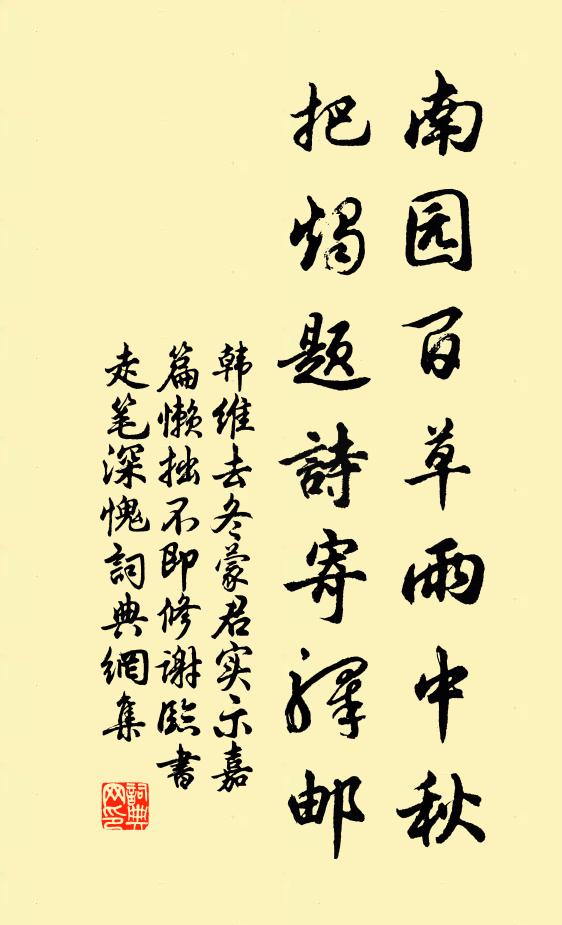 南园百草雨中秋
把燭题詩寄驛邮
韩维去冬蒙君实示嘉
篇懒拙不即修谢臨書
走笔深愧詞典網集
詞典
网印